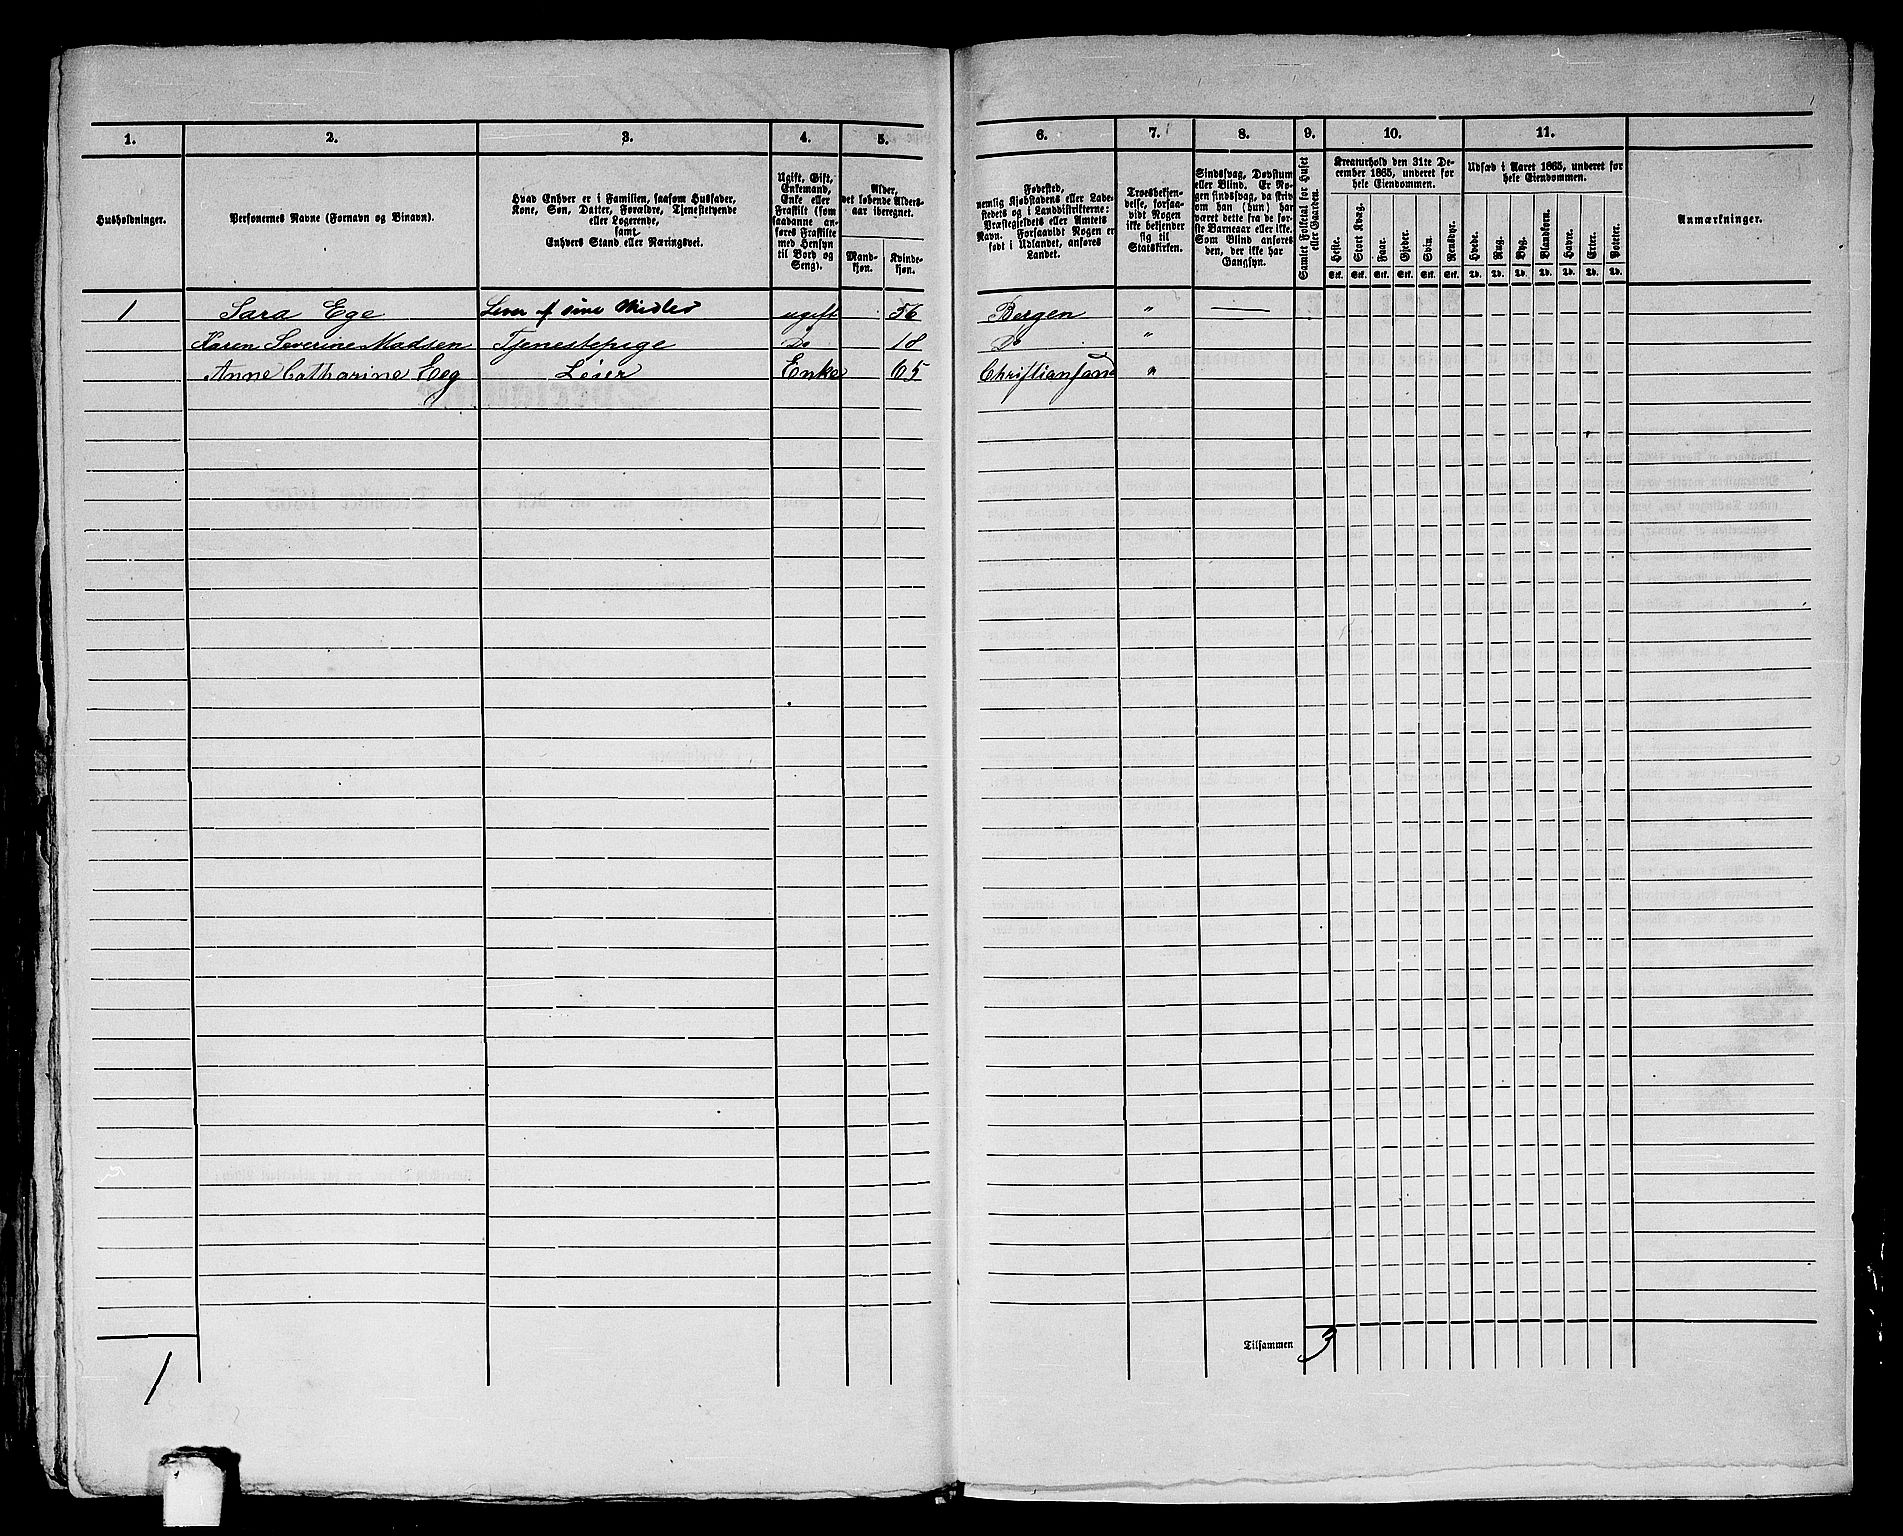 1. 2. 3. 4. 5. 6. 7. 8. 9. 10. 11.
Husholdninger.
Personernes Navne (Fornavn og Binavn).
Hvad Enhver er i Familien, saasom Husfader,
Kone, Søn, Datter, Forældre, Tjenestetyende
eller Logerende,
samt
Enhvers Stand eller Næringsvei.
Ugift, Gift,
Enkemand,
Enke eller
Fraskilt (som
saadanne an-
føres Fraskilte
med Hensyn
til Bord og
Seng).
Alder,
det løbende Alders-
aar iberegnet.
Mand-
kjøn.
Kvinde-
kjøn.
Fødested,
nemlig Kjøbstadens eller Lade-
stedets og i Landdistrikterne:
Præstegjeldets eller Amtets
Navn. Forsaavidt Nogen er
født i Udlandet, anføres
Landet.
Troesbekjen-
delse, forsaa-
vidt Nogen
ikke bekjender
sig til
Statskirken.
Sindssvag, Døvstum
eller Blind. Er No-
gen sindssvag, da skriv
om han (hun) har
været dette fra de før-
ste Barneaar eller ikke.
Som Blind anføres
den, der ikke har
Gangsyn.
Samlet Folketal for Huset
eller Gaarden.
Kreaturhold den 31te De-
cember 1865, underet for
hele Eiendommen.
Heste. Stort Kvæg. Faar. Gjeder. Svin. Rensdyr.
Stk. Stk. Stk. Stk. Stk. Stk.
Udsæd i Aaret 1865, underet for
hele Eiendommen.
Hvede. Rug. Byg. Blandkorn. Havre. Erter. Poteter.
Td. Td. Td. Td. Td. Td. Td.
Anmærkninger.
1 Sara Ege Lever af sine Midler ugift 56 Bergen " —
Karen Severine Madsen Tjenestepige Do 18 Do "
Anne Catharine Eeg Leier Enke 65 Christiansand "
Tilsammen 3
1